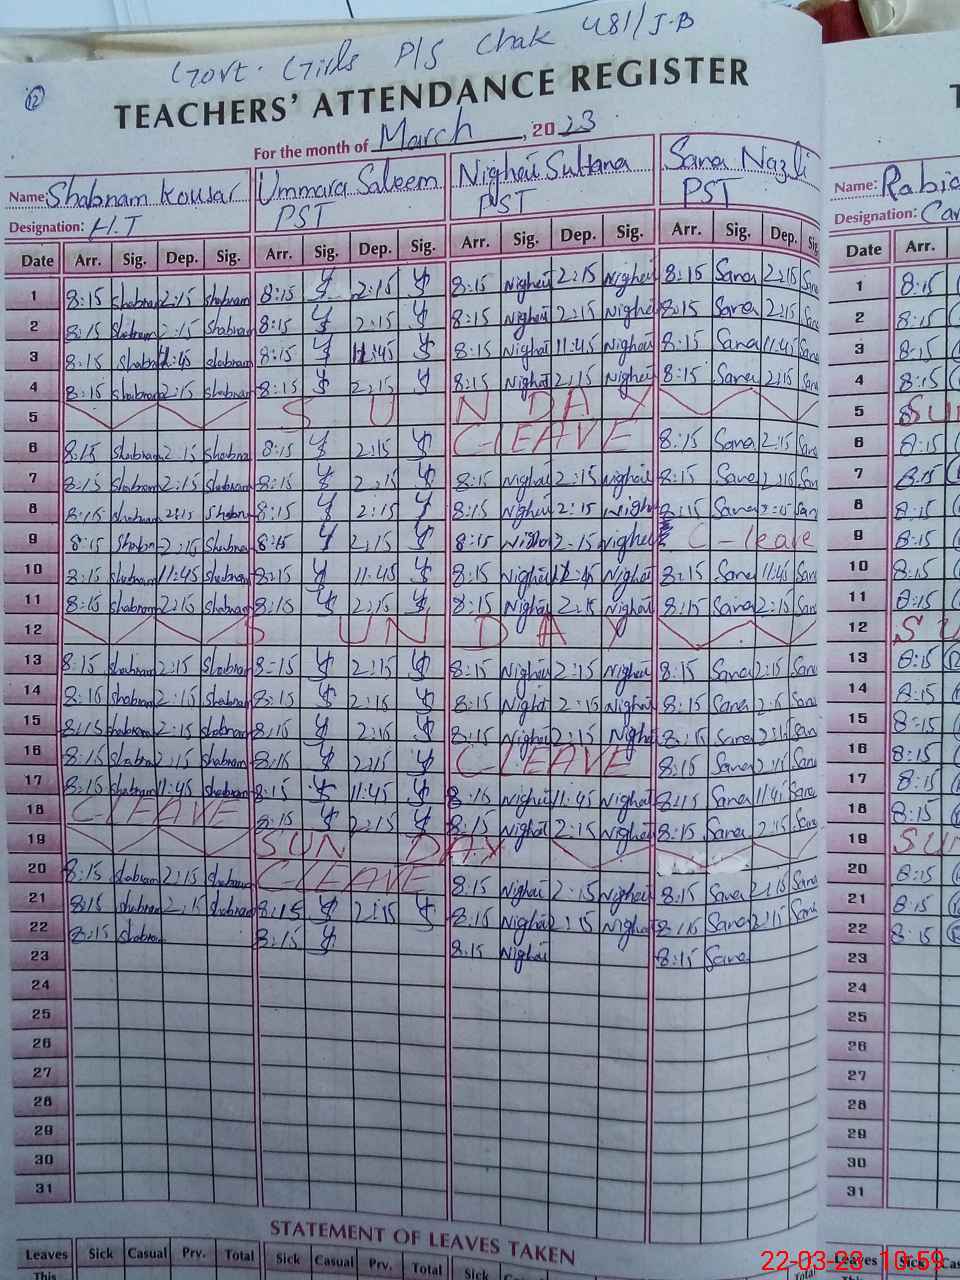 Govt. Girls P/S Chak 481/J-B
12
TEACHERS' ATTENDANCE REGISTER
For the month of March, 2023
Name: Shabnam Kousar Ummara Saleem Nighat Sultana Sana Nazli Name: Rabia
Designation: H.T PST PST PST Designation:
Date Arr. Sig. Dep. Sig. Arr. Sig. Dep. Sig. Arr. Sig. Dep. Sig. Arr. Sig. Dep. Sig. Date Arr.
1 8:15 Shabnam 2:15 Shabnam 8:15 2:15 8:15 Nighat 2:15 Nighat 8:15 Sana 2:15 Sana 1 8:15
2 8:15 Shabnam 2:15 Shabnam 8:15 2:15 8:15 Nighat 2:15 Nighat 8:15 Sana 2:15 Sana 2 8:15
3 8:15 Shabnam 11:45 Shabnam 8:15 11:45 8:15 Nighat 11:45 Nighat 8:15 Sana 11:45 Sana 3 8:15
4 8:15 Shabnam 2:15 Shabnam 8:15 2:15 8:15 Nighat 2:15 Nighat 8:15 Sana 2:15 Sana 4 8:15
5 SUNDAY 5 SU
6 8:15 Shabnam 2:15 Shabnam 8:15 2:15 C-LEAVE 8:15 Sana 2:15 Sana 6 8:15
7 8:15 Shabnam 2:15 Shabnam 8:15 2:15 8:15 Nighat 2:15 Nighat 8:15 Sana 2:15 Sana 7 8:15
8 8:15 Shabnam 2:15 Shabnam 8:15 2:15 8:15 Nighat 2:15 Nighat 8:15 Sana 2:15 Sana 8 8:15
9 8:15 Shabnam 2:15 Shabnam 8:15 2:15 8:15 Nighat 2:15 Nighat C-leave 9 8:15
10 8:15 Shabnam 11:45 Shabnam 8:15 11:45 8:15 Nighat 11:45 Nighat 8:15 Sana 11:45 Sana 10 8:15
11 8:15 Shabnam 2:15 Shabnam 8:15 2:15 8:15 Nighat 2:15 Nighat 8:15 Sana 2:15 Sana 11 8:15
12 SUNDAY 12 SU
13 8:15 Shabnam 2:15 Shabnam 8:15 2:15 8:15 Nighat 2:15 Nighat 8:15 Sana 2:15 Sana 13 8:15
14 8:15 Shabnam 2:15 Shabnam 8:15 2:15 8:15 Nighat 2:15 Nighat 8:15 Sana 2:15 Sana 14 8:15
15 8:15 Shabnam 2:15 Shabnam 8:15 2:15 8:15 Nighat 2:15 Nighat 8:15 Sana 2:15 Sana 15 8:15
16 8:15 Shabnam 2:15 Shabnam 8:15 2:15 C LEAVE 8:15 Sana 2:15 Sana 16 8:15
17 8:15 Shabnam 11:45 Shabnam 8:15 11:45 8:15 Nighat 11:45 Nighat 8:15 Sana 11:45 Sana 17 8:15
18 C LEAVE 8:15 2:15 8:15 Nighat 2:15 Nighat 8:15 Sana 2:15 Sana 18 8:15
19 SUNDAY 19 SUN
20 8:15 Shabnam 2:15 Shabnam C-LEAVE 8:15 Nighat 2:15 Nighat 8:15 Sana 2:15 Sana 20 8:15
21 8:15 Shabnam 2:15 Shabnam 8:15 2:15 8:15 Nighat 2:15 Nighat 8:15 Sana 2:15 Sana 21 8:15
22 8:15 Shabnam 8:15 8:15 Nighat 8:15 Sana 22 8:15
23 23
24 24
25 25
26 26
27 27
28 28
29 29
30 30
31 31
STATEMENT OF LEAVES TAKEN
Leaves Sick Casual Prv. Total Sick Casual Prv. Total Sick Total Leaves Sick
This
22-03-23 10:59